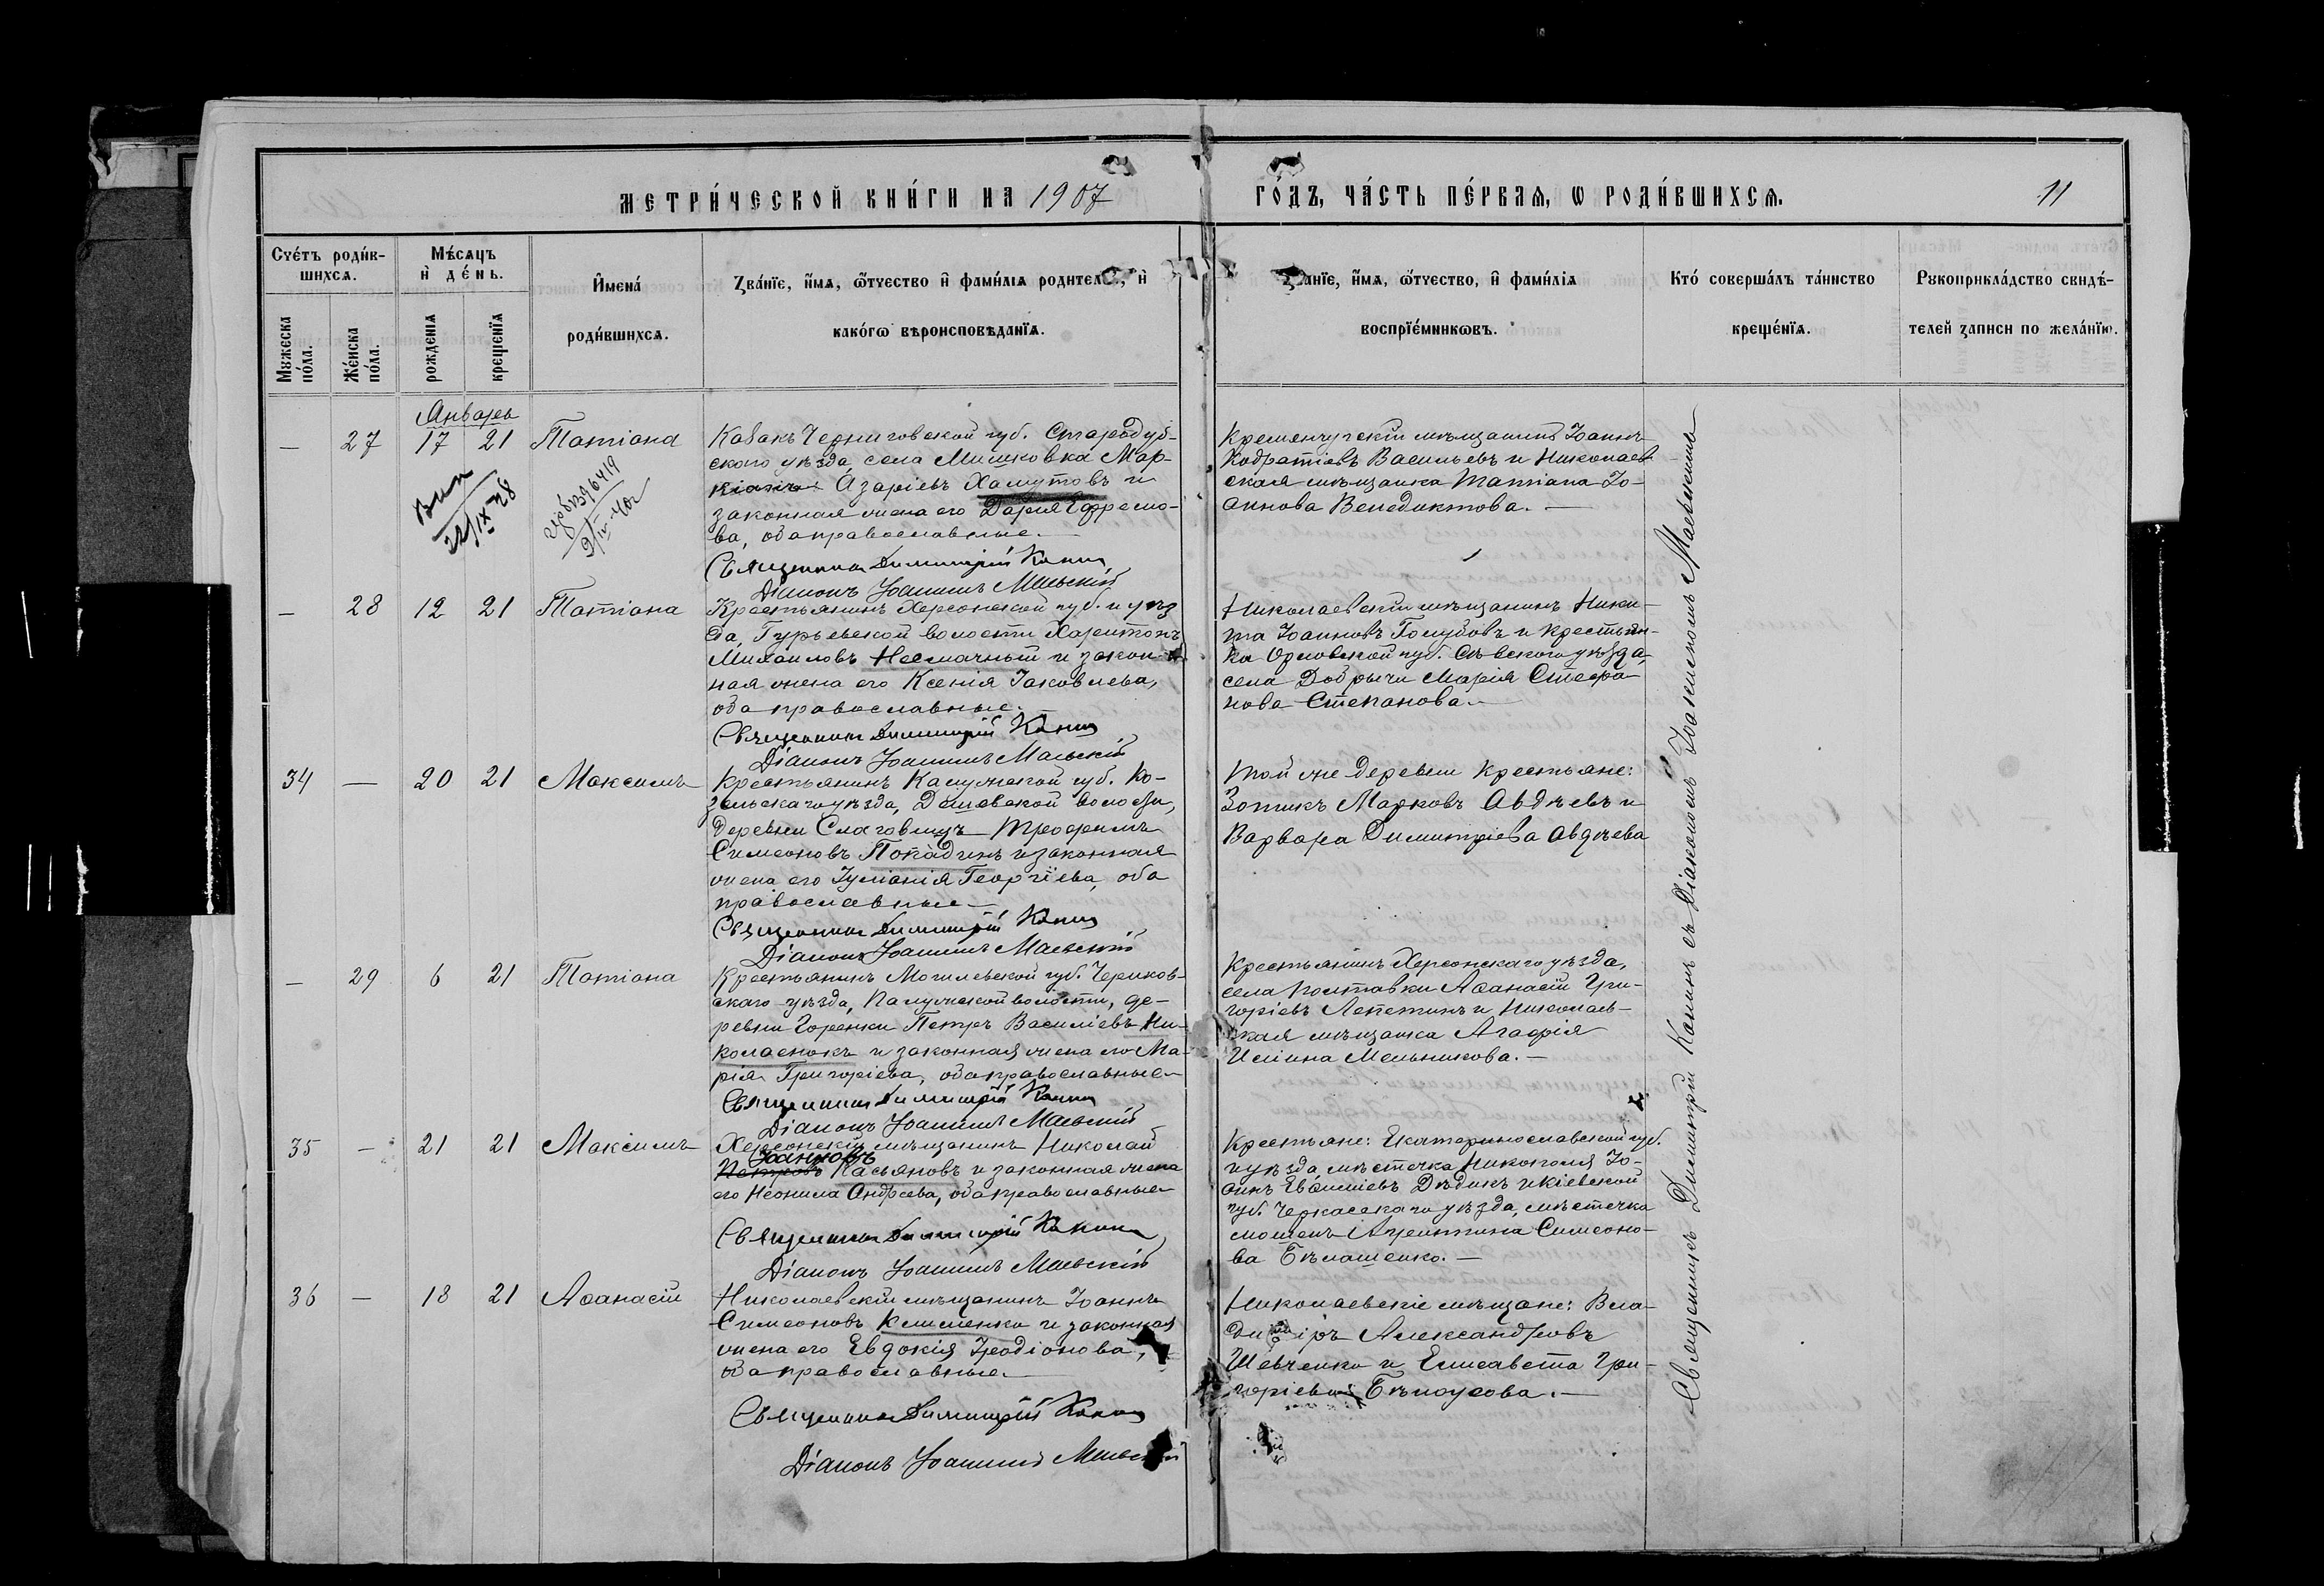 МЕТРИ́ЧЕСКОЙ КНИ́ГИ НА 1907
ГО́ДЪ, ЧА́СТЬ ПЕ́РВАѦ, Ѡ РОДИ́ВШИХСѦ.
11
Сче́тъ роди́в-
шихсѧ.
Мꙋжеска
по́ла.
Же́нска
по́ла.
Мѣ́сѧцъ
и҆ де́нь.
рожденїѧ
крещенїѧ
И҆мена́
роди́вшихсѧ.
Зва́нїе, и҆́мѧ, ѻ҆́тчество и҆ фами́лїѧ родител , и҆
како́гѡ вѣроисповѣданїѧ.
анїе, и҆́мѧ, ѻ҆́тчество, и҆ фами́лїѧ
воспрїе́мникѡвъ.
Кто́ соверша́лъ та́инство
креще́нїѧ.
Рꙋкоприкла́дство свидѣ́-
телей записи по жела́нїю.
Январь
— 27 17 21 Татіана
Козакъ Черниговской губ. Стародуб-
скаго уѣзда, села Мишковка Мар-
кіанъ Азаріевъ Хамутовъ и
законная жена его Дарія Ефремо-
ва, оба православные.
Священникъ Димитрій Канинъ
Діаконъ Іоанникъ Маевскій
Кременчугскій мѣщанинъ Іоаннъ
Кодратіевъ Васильевъ и Николаев
ская мѣщанка Татіана Іо-
аннова Венедиктова. —
— 28 12 21 Татіана
Крестьянинъ Херсонской губ. и уѣз
да, Гурьевской волости Харитонъ
Михаиловъ Несмачный и закон-
ная жена его Ксенія Іаковлева,
оба православные. —
Священникъ Димитрій Канинъ
Діаконъ Іоанникъ Маевскій
Николаевскій мѣщанинъ Ники-
та Іоанновъ Голубовъ и крестьян-
ка Орловской губ. Сѣвскаго уѣзда,
села Добрычи Марія Стефа
нова Степанова. —
34 — 20 21 Максимъ
Крестьянинъ Калужской губ. Ко-
зельскаго уѣзда, Дешевской волости,
деревни Слаговищъ Трофимъ
Симеоновъ Покадинъ и законная
жена его Іуліанія Георгіева, оба
православные —
Священникъ Димитрій Канинъ
Діаконъ Іоанникъ Маевскій
Той же деревни крестьяне:
Зотикъ Марковъ Авдѣевъ и
Варвара Димитріева Авдѣева
— 29 6 21 Татіана
Крестьянинъ Могилевской губ. Чериков-
скаго уѣзда, Палужской волости, де-
ревни Горенки Петръ Василіевъ Ни-
колаенокъ и законная жена его Ма-
рія Григоріева, оба православные —
Священникъ Димитрій Канинъ
Діаконъ Іоанникъ Маевскій
Крестьянинъ Херсонскаго уѣзда,
села Полтавки Аѳанасій Гри-
горіевъ Лепетинъ и Николаев-
ская мѣщанка Агафія
Иліина Мельникова. —
35 — 21 21 Максимъ
Херсонскій мѣщанинъ Николай
Іоанновъ
Петровъ Касьяновъ и законная жена
его Неонила Андреева, оба православные
Священникъ Димитрій Канинъ
Діаконъ Іоанникъ Маевскій
Крестьяне: Екатеринославской губ.
и уѣзда, мѣстечка Никополя Іо-
аннъ Евѳиміевъ Дѣдикъ и Кіевской
губ. Черкасскаго уѣзда, мѣстечка
Симеоно-
ва Бѣлашенко. —
36 — 18 21 Аѳанасій
Николаевскій мѣщанинъ Іоаннъ
Симеоновъ Клименко и законная
жена его Евдокія Иродіонова,
оба православные. —
Священникъ Димитрій Канинъ
Діаконъ Іоанникъ Маевскій
Николаевскіе мѣщане: Вла-
диміръ Александровъ
Шевченко и Елисавета Гри-
горіева Бѣлоусова. —
Священникъ Димитрій Канинъ съ Діакономъ Іоанникомъ Маевскимъ